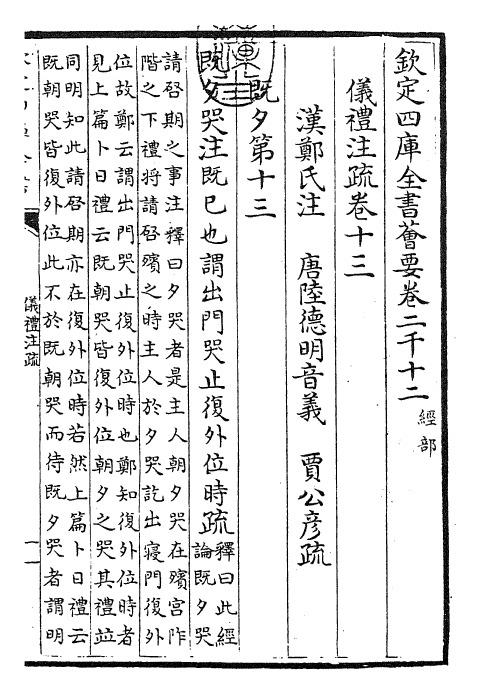 欽定四庫全書薈要卷二千十二 經部
儀禮注疏卷十三
漢鄭氏注 唐陸德明音義 賈公彥疏
既夕第十三
既夕哭注既已也謂出門哭止復外位時疏釋曰此經
論既夕哭
請啓期之事注釋曰夕哭者是主人朝夕哭在殯宮阼
階之下禮將請啓殯之時主人於夕哭訖出寢門復外
位故鄭云謂出門哭止復外位時也鄭知復外位時者
見上篇卜日禮云既朝哭皆復外位朝夕之哭其禮並
同明知此請啓期亦在復外位時若然上篇卜日禮云
既朝哭皆復外位此不於既朝哭而待既夕哭者謂明
儀禮注疏
一